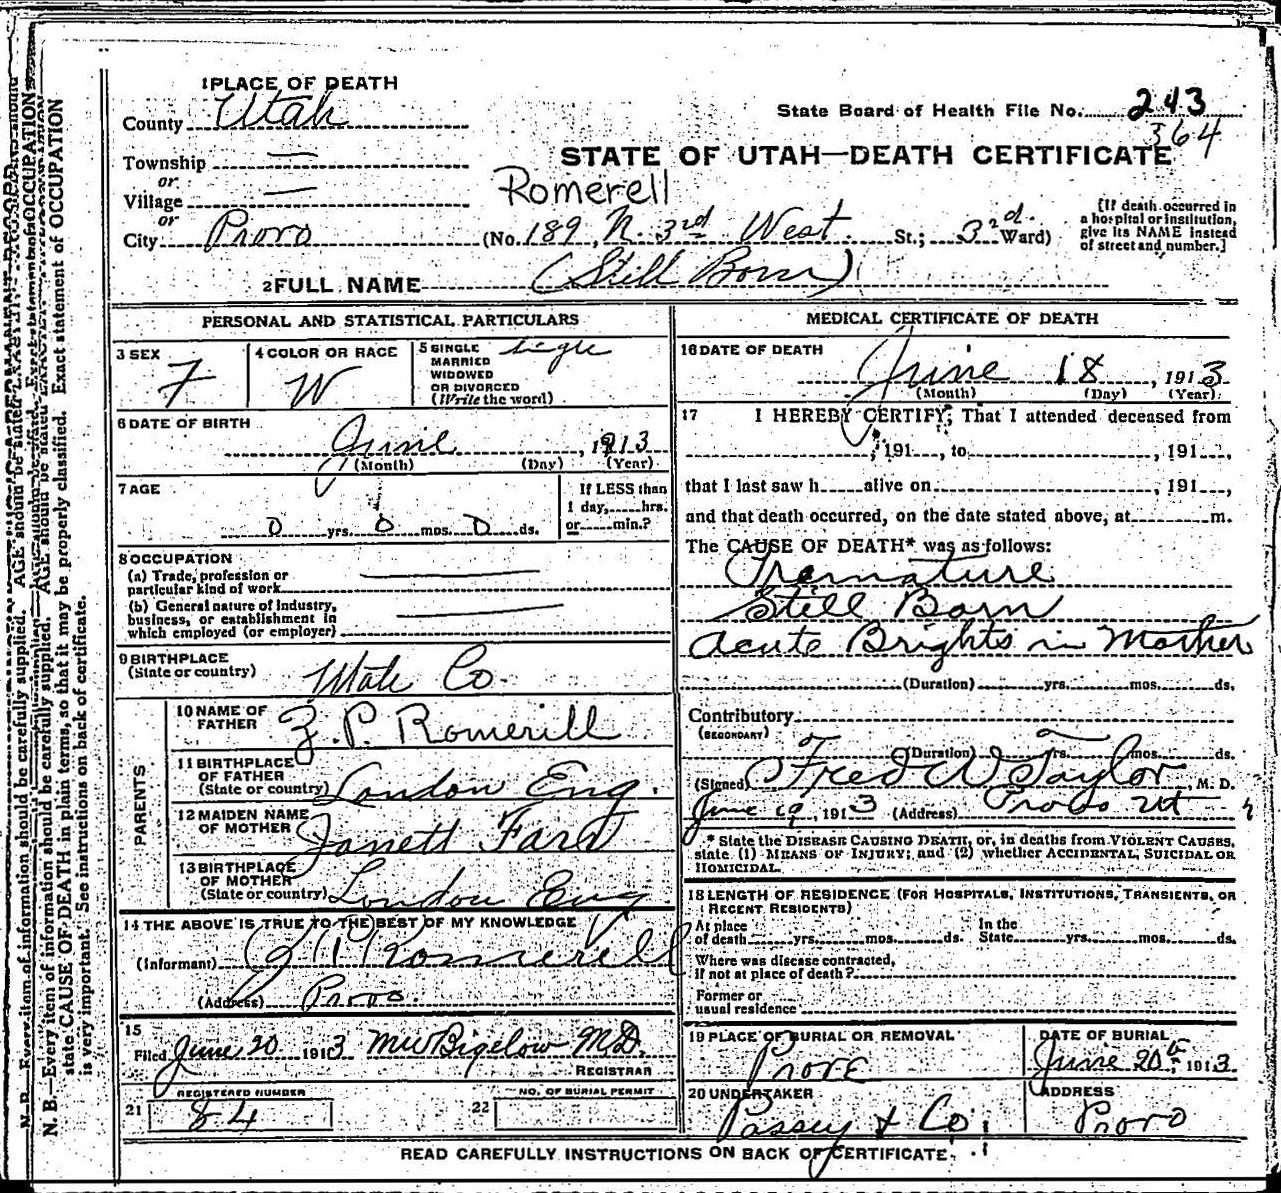 1PLACE OF DEATH
County Utah
State Board of Health File No. 243
364
Township —
or
STATE OF UTAH—DEATH CERTIFICATE
Village —
or
Romerell
City Provo
(No. 189, N. 3rd West St.; 3rd Ward)
[If death occurred in
a hospital or institution,
give its NAME instead
of street and number.]
2FULL NAME (Still Born)
PERSONAL AND STATISTICAL PARTICULARS
3 SEX
F
4 COLOR OR RACE
W
5 SINGLE
MARRIED
WIDOWED
OR DIVORCED
(Write the word)
Single
6 DATE OF BIRTH
June , 1913
(Month) (Day) (Year)
7 AGE
0 yrs. 0 mos. 0 ds.
If LESS than
1 day, hrs.
or min.?
8 OCCUPATION
(a) Trade, profession or
particular kind of work
(b) General nature of industry,
business, or establishment in
which employed (or employer)
9 BIRTHPLACE
(State or country)
Utah Co
PARENTS
10 NAME OF
FATHER
Z. P. Romerill
11 BIRTHPLACE
OF FATHER
(State or country)
London Eng.
12 MAIDEN NAME
OF MOTHER
Janett
13 BIRTHPLACE
OF MOTHER
(State or country)
London Eng
14 THE ABOVE IS TRUE TO THE BEST OF MY KNOWLEDGE
(Informant) Romerell
(Address) Provo.
15
Filed June 20 1913 MW Bigelow MD.
REGISTRAR
REGISTERED NUMBER
21 84
NO. OF BURIAL PERMIT
22
MEDICAL CERTIFICATE OF DEATH
16 DATE OF DEATH
June 18 , 1913
(Month) (Day) (Year)
17 I HEREBY CERTIFY, That I attended deceased from
, 191 , to , 191 ,
that I last saw h alive on , 191 ,
and that death occurred, on the date stated above, at m.
The CAUSE OF DEATH* was as follows:
Premature
Still Born
Acute Brights in Mother
(Duration) yrs. mos. ds.
Contributory
(SECONDARY)
(Duration) yrs. mos. ds.
(Signed) Fred W Taylor, M. D.
June 19, 1913 (Address) Provo Ut
* State the DISEASE CAUSING DEATH, or, in deaths from VIOLENT CAUSES,
state (1) MEANS OF INJURY; and (2) whether ACCIDENTAL, SUICIDAL OR
HOMICIDAL.
18 LENGTH OF RESIDENCE (FOR HOSPITALS, INSTITUTIONS, TRANSIENTS, OR
RECENT RESIDENTS)
At place
of death yrs. mos. ds.
In the
State yrs. mos. ds.
Where was disease contracted,
if not at place of death?
Former or
usual residence
19 PLACE OF BURIAL OR REMOVAL
Provo
DATE OF BURIAL
June 20th, 1913.
20 UNDERTAKER
Passey & Co.
ADDRESS
Provo
READ CAREFULLY INSTRUCTIONS ON BACK OF CERTIFICATE.
N. B.—Every item of information should be carefully supplied. AGE should be stated EXACTLY.
state CAUSE OF DEATH in plain terms, so that it may be properly classified. Exact statement of OCCUPATION
is very important. See instructions on back of certificate.